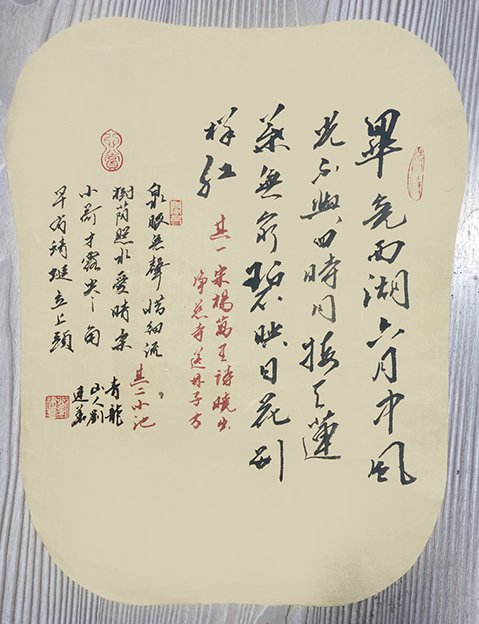 畢竟西湖六月中風
光不與四時同接天蓮
葉無窮碧映日花別
樣紅
其一宋楊萬里詩曉出
淨慈寺送林子方
泉眼無聲惜細流
其二小池
樹蔭照水愛晴柔
小荷才露尖尖角
早有蜻蜓立上頭
青龍
山人劉